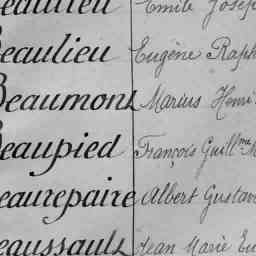 Beaulieu Émile Joseph
Beaulieu Eugène Raph
Beaumont Marius Henri
Beaupied François Guill.me M
Beaurepaire Albert Gustav
Beaussault Jean Marie Eu